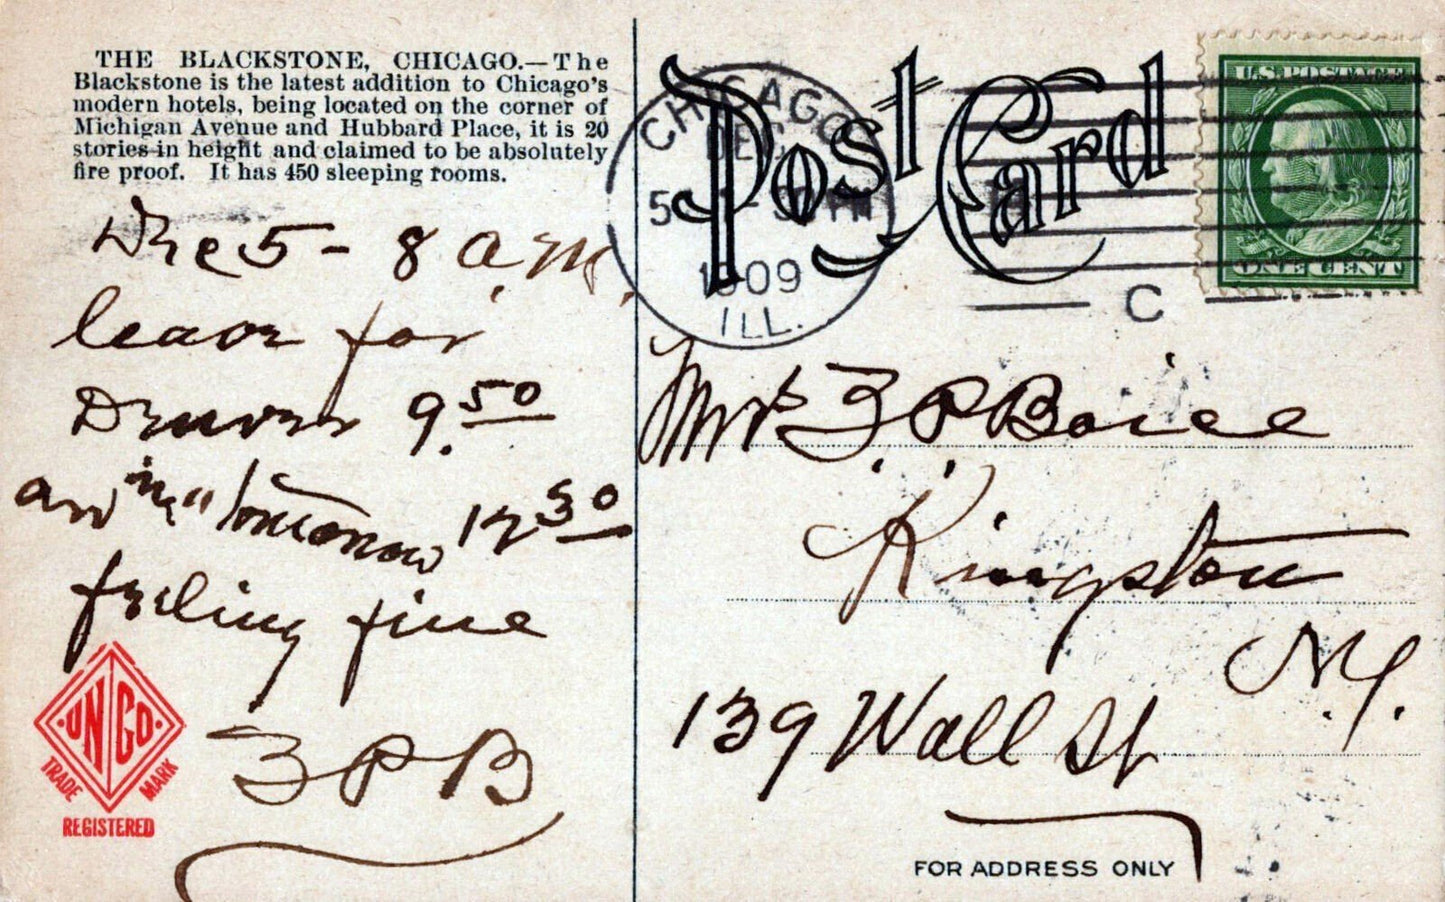 THE BLACKSTONE, CHICAGO.—The
Blackstone is the latest addition to Chicago's
modern hotels, being located on the corner of
Michigan Avenue and Hubbard Place, it is 20
stories in height and claimed to be absolutely
fire proof. It has 450 sleeping rooms.
Dec 5 - 8 a.m.
leave for
Denver 9.50
tomorrow 12 30
feeling fine
Z P B
UN CO.
TRADE MARK
REGISTERED
Post Card
CHICAGO
DEC
5
1909
ILL.
C
U.S. POSTAGE
ONE CENT
Mrs Z. P. Boice
Kingston
N.Y.
139 Wall St
FOR ADDRESS ONLY